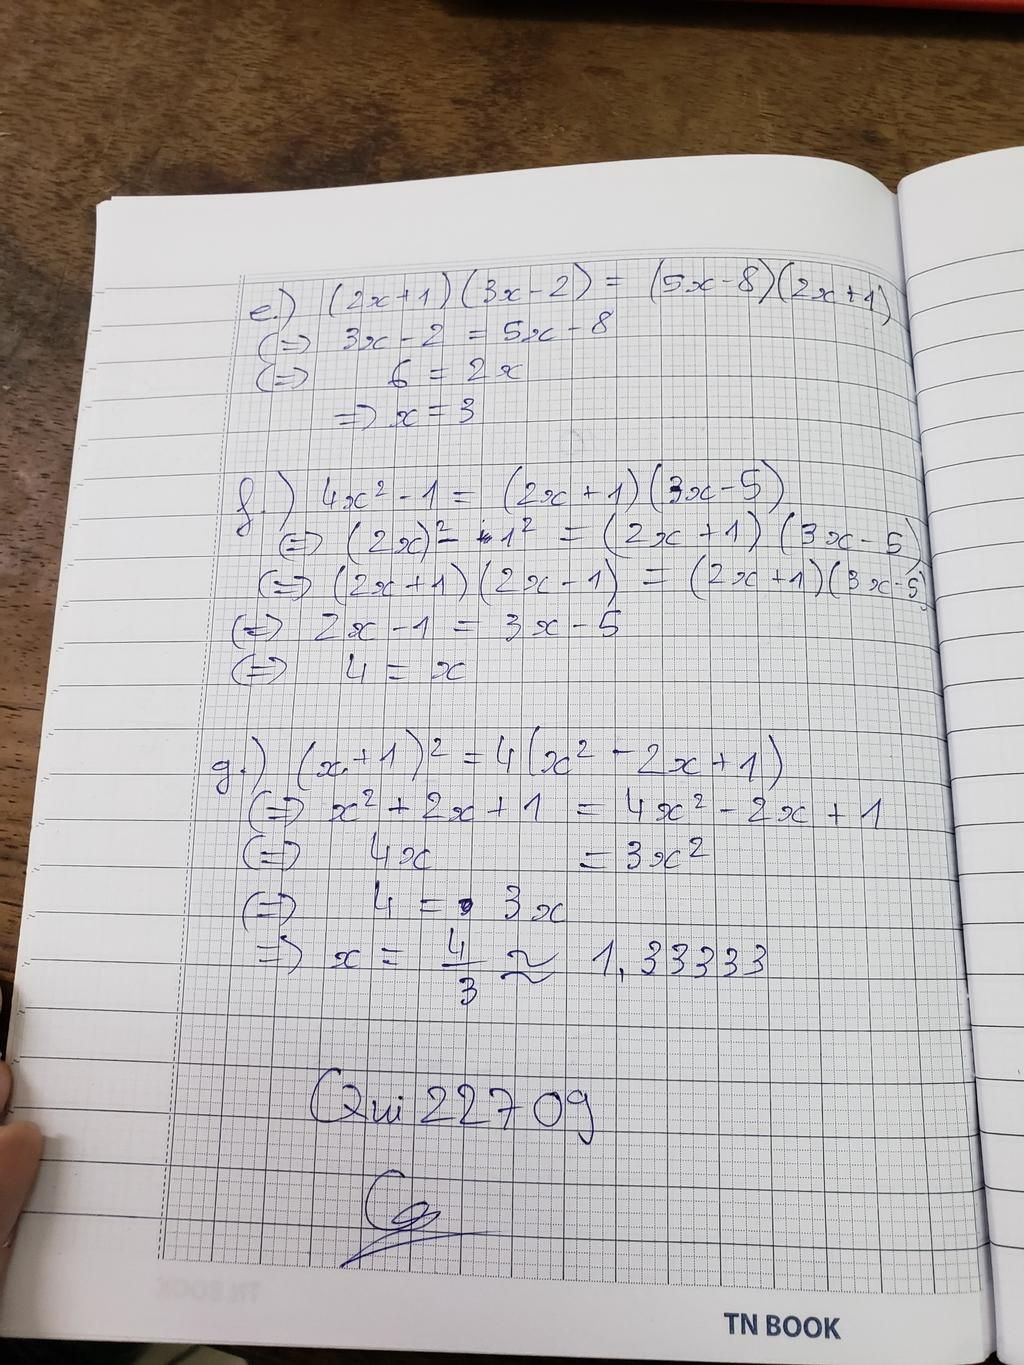 e.) (2x+1)(3x-2) = (5x-8)(2x+1)
(=) 3x-2 = 5x-8
(=) 6 = 2x
=) x = 3
f.) 4x² - 1 = (2x+1)(3x-5)
(=) (2x)² - 1² = (2x+1)(3x-5)
(=) (2x+1)(2x-1) = (2x+1)(3x-5)
(=) 2x-1 = 3x-5
(=) 4 = x
g.) (x+1)² = 4(x² - 2x+1)
(=) x² + 2x + 1 = 4x² - 2x + 1
(=) 4x = 3x²
(=) 4 = 3x
=) x = 4/3 ≈ 1,33333
Qui 22709
TN BOOK
TN BOOK